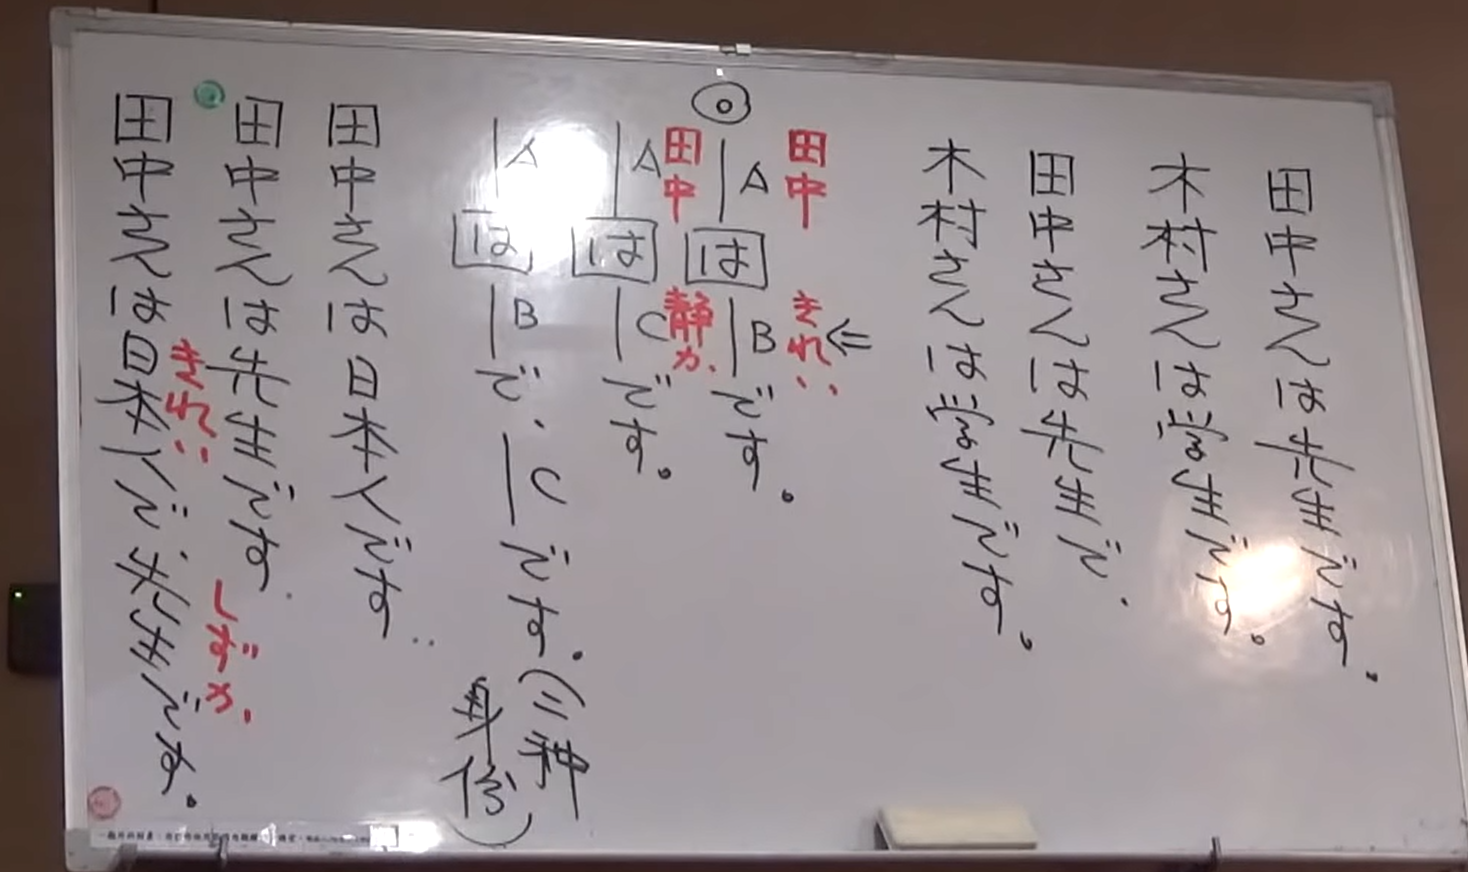 田中さんは先生です。
木村さんは学生です。
田中さんは先生で、
木村さんは学生です。
田中 きれい
A は B です。
田中 静か
A は C です。
A は B で、C です。(二种
身份)
田中さんは日本人です
田中さんは先生です
きれい しずか
田中さんは日本人で、先生です。